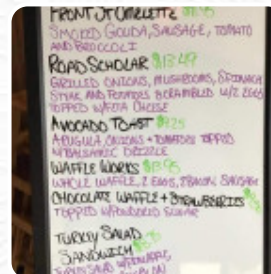 FRONT ST OMELETTE
SMOKED GOUDA, SAUSAGE, TOMATO
AND BROCCOLI
ROAD SCHOLAR $13.49
GRILLED ONIONS, MUSHROOMS, SPINACH
STEAK AND POTATOES SCRAMBLED W/2 EGGS
TOPPED W/FETA CHEESE
AVOCADO TOAST $9.25
ARUGULA, ONIONS + TOMATOES TOPPED
W/BALSAMIC DRIZZLE
WAFFLE WORKS $13.95
WHOLE WAFFLE, 2 EGGS, 2 BACON, SAUSAGE
CHOCOLATE WAFFLE + STRAWBERRIES
TOPPED W/POWDERED SUGAR
TURKEY SALAD
SANDWICH
TURKEY SALAD